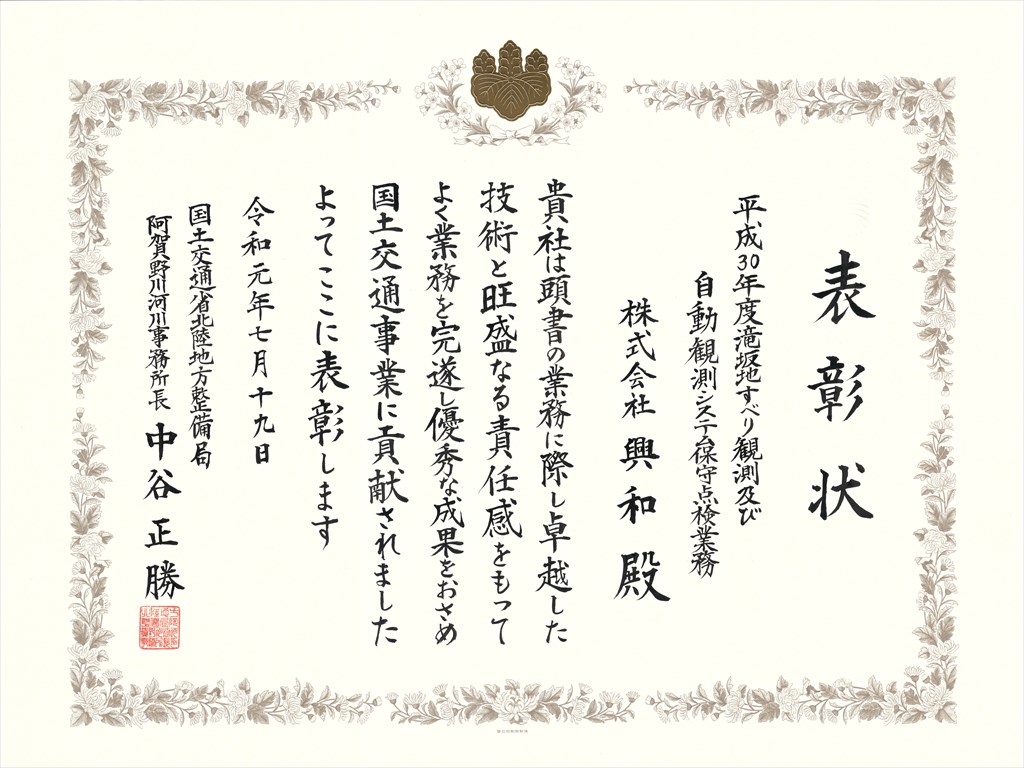 表彰状
平成30年度滝坂地すべり観測及び
自動観測システム保守点検業務
株式会社興和殿
貴社は頭書の業務に際し卓越した
技術と旺盛なる責任感をもって
よく業務を完遂し優秀な成果をおさめ
国土交通事業に貢献されました
よってここに表彰します
令和元年七月十九日
国土交通省北陸地方整備局
阿賀野川河川事務所長 中谷正勝